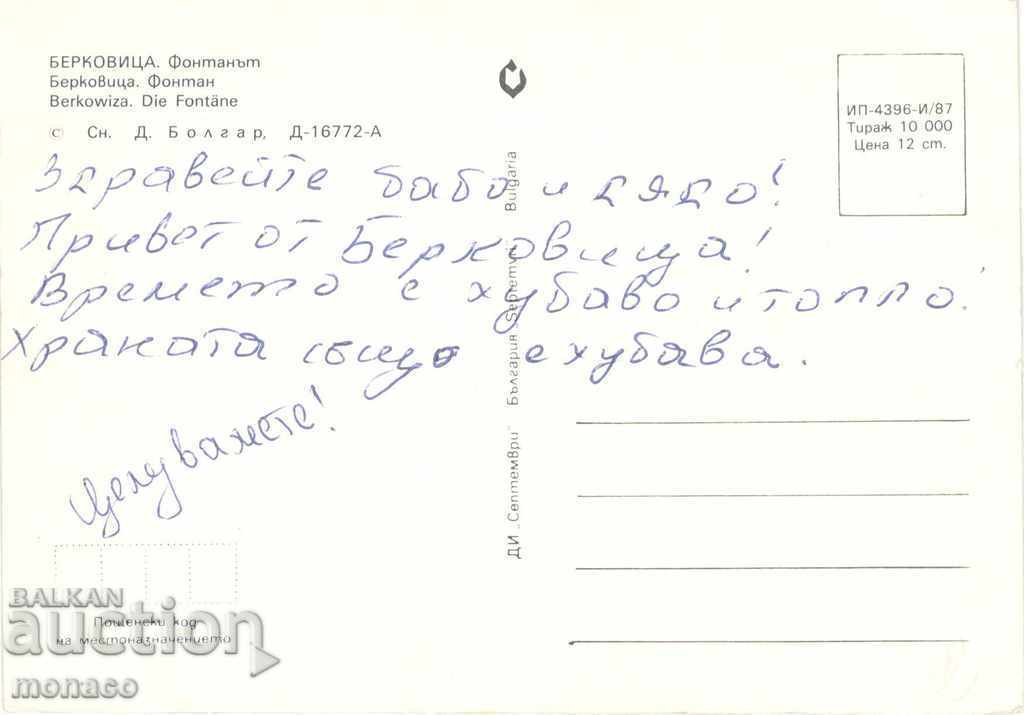 БЕРКОВИЦА. Фонтанът
Берковица. Фонтан
Berkowiza. Die Fontäne
© Сн. Д. Болгар, Д-16772-А
ИП-4396-И/87
Тираж 10 000
Цена 12 ст.
Здравейте бабо и дядо!
Привет от Берковица!
Времето е хубаво и топло!
Храната също е хубава.
Целувамете!
ДИ „Септември" България „Septemvri" Bulgaria
Пощенски код
на местоназначението
BALKAN
auction
monaco